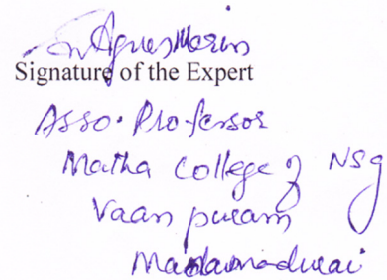 Agnes
Signature of the Expert
Asso. Professor
Matha College of NSg
Vaan puram